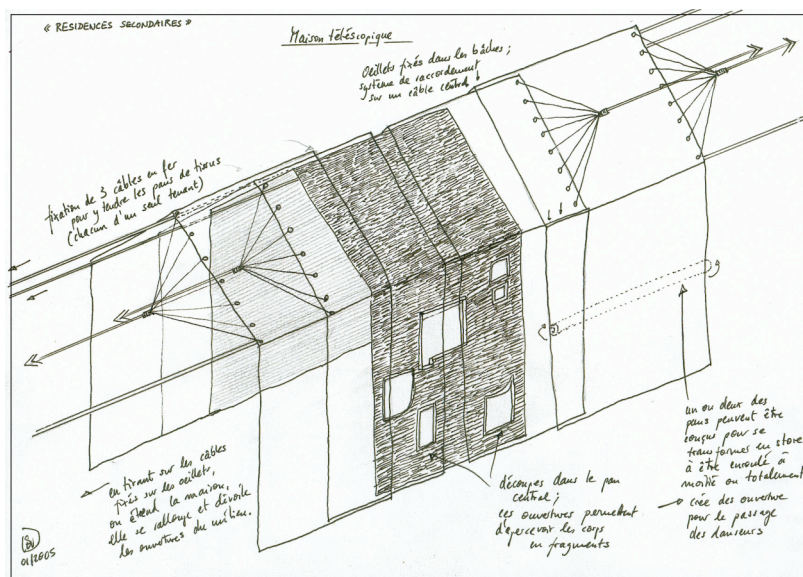 « RESIDENCES SECONDAIRES »
Maison télescopique
Oeillets fixés dans les bâches ;
système de raccordement
sur un câble central
fixation de 3 câbles en fer
pour y tendre les pans de tissus
(chacun d'un seul tenant)
en tirant sur les câbles
fixés sur les oeillets,
on étend la maison,
elle se rallonge et dévoile
les ouvertures du milieu.
découpes dans le pan
central ;
ces ouvertures permettent
d'apercevoir les corps
en fragments
un ou deux des
pans peuvent être
conçus pour se
transformer en store
à être enroulé à
moitié ou totalement
→ crée des ouverture
pour le passage
des danseurs
01/2005